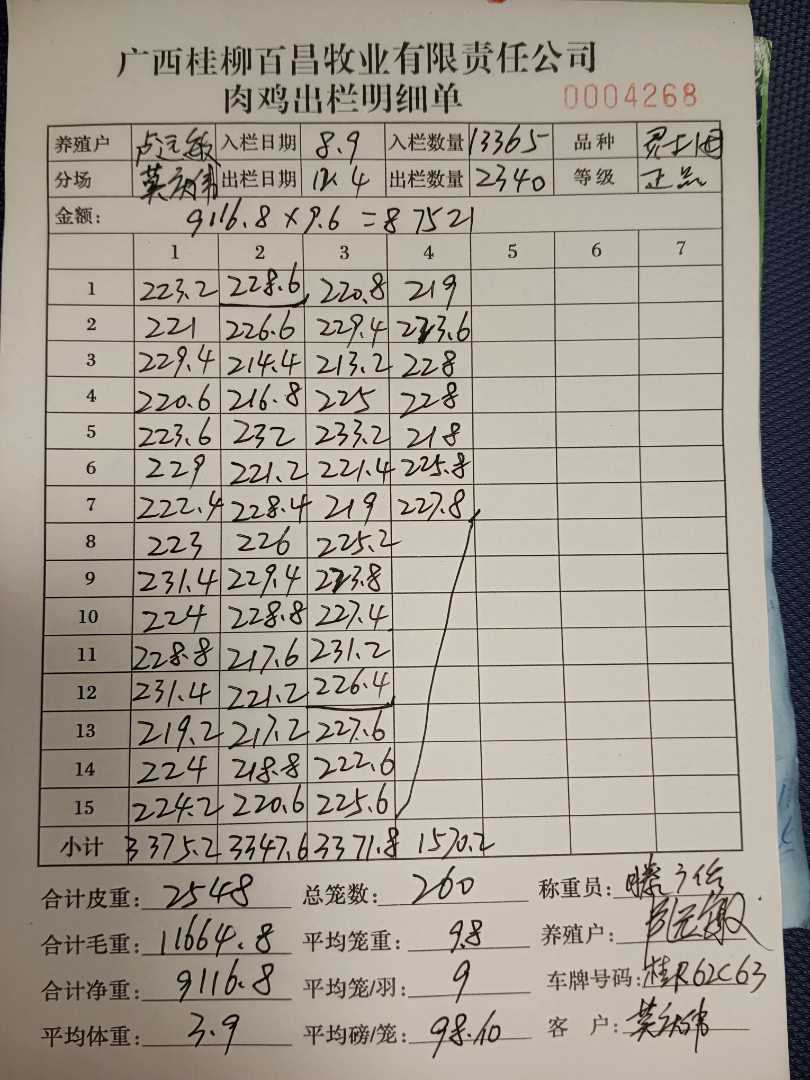 广西桂柳百昌牧业有限责任公司
肉鸡出栏明细单 0004268
养殖户 卢远敏 入栏日期 8.9 入栏数量 13365 品种
分场 莫庆伟 出栏日期 4 出栏数量 2340 等级 正品
金额: 9116.8 × 9.6 = 87521
1 2 3 4 5 6 7
1 223.2 228.6 220.8 219
2 221 226.6 229.4 223.6
3 229.4 214.4 213.2 228
4 220.6 216.8 225 228
5 223.6 232 233.2 218
6 229 221.2 221.4 225.8
7 222.4 228.4 219 227.8
8 223 226 225.2
9 231.4 229.4 223.8
10 224 228.8 227.4
11 228.8 217.6 231.2
12 231.4 221.2 226.4
13 219.2 217.2 227.6
14 224 218.8 222.6
15 224.2 220.6 225.6
小计 3375.2 3347.6 3371.8 1570.2
合计皮重: 2548 总笼数: 260 称重员:
合计毛重: 11664.8 平均笼重: 9.8 养殖户: 卢远敏
合计净重: 9116.8 平均笼/羽: 9 车牌号码: 桂R62C63
平均体重: 3.9 平均磅/笼: 98.10 客户: 莫庆伟